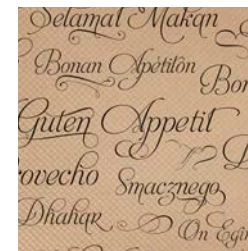 Selamat Makan
Bonan Apetiton
Bon
Guten Appetit
rovecho
Smacznego
Dhahar
On Egin